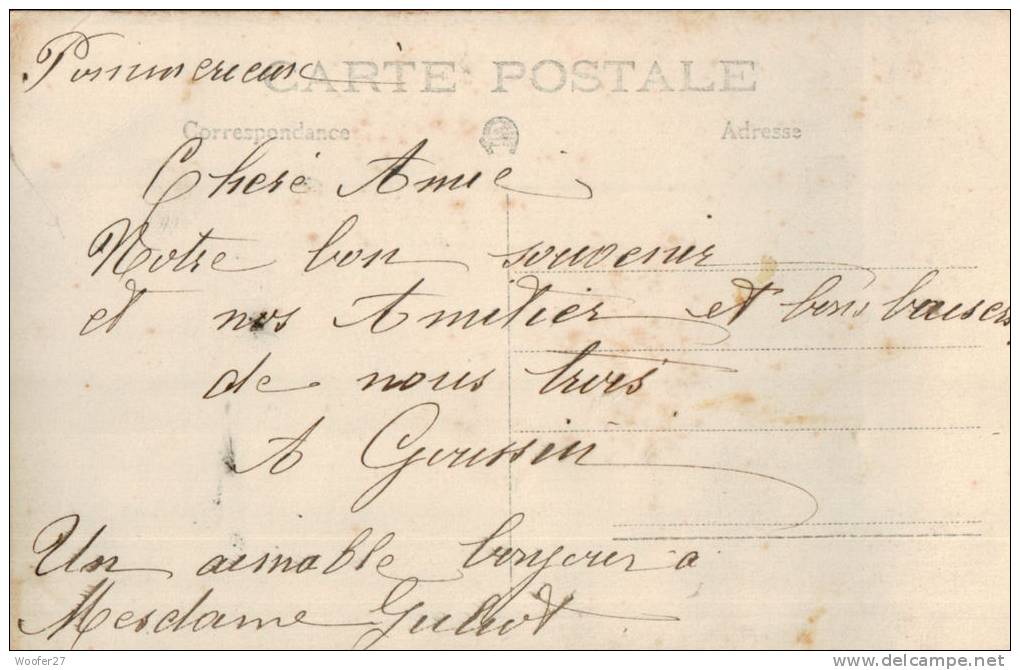 Pommerieux
CARTE POSTALE
Correspondance
Adresse
Cheré Amie
Notre bon souvenir
et nos Amitier et bons baisers
de nous trois
A Goussin
Un aimable bonjour a
Mesdame
Woofer27
www.delcampe.net